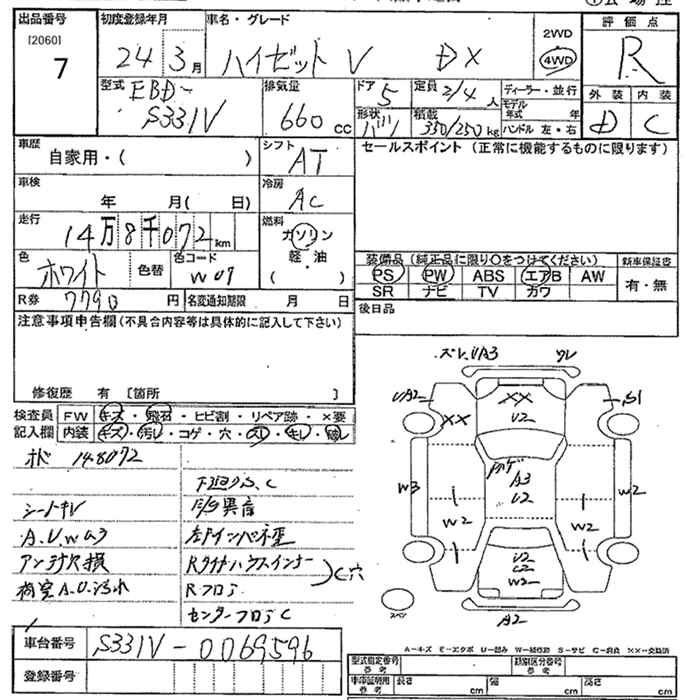 出品番号 初度登録年月 車名・グレード 2WD 評価点
[2060] 7 24年 3月 ハイゼット V DX 4WD R
型式 EBD- 排気量 ドア 5 定員 2/4人 ディーラー・並行 外装 内装
S331V 660cc 形状 バン 積載 350/250kg モデル年式 年 D C
ハンドル 左・右
車歴 自家用・( ) シフト AT セールスポイント (正常に機能するものに限ります)
車検 年 月( 日) 冷房 AC
走行 14万8千072km 燃料 ガソリン
色 ホワイト 色替 色コード W09 軽・油 ( )
装備品 (純正品に限り○をつけてください) 新車保証書
PS PW ABS エアB AW 有・無
SR ナビ TV カワ
R券 7790円 名変通知期限 月 日 後日品
注意事項申告欄(不具合内容等は具体的に記入して下さい)
修復歴 有 [箇所 ]
検査員 FW キズ・飛石・ヒビ割・リペア跡・×要
記入欄 内装 キズ・汚れ・コゲ・穴・スレ・キレ・破れ
148092
下廻りS.C
異音
A.U.W A3
アンテナ欠損
Rタイヤハウスインナー
C穴
Rフロア
センターフロアC
ズレ.UA3 ワレ
UA2 S1
×× ××
U2
W3 A3 W2
U2
W2 W2
U2
C2
W2
スペン A2
A-キズ E-エクボ U-凹み W-補修跡 S-サビ C-腐食 ××-交換済
車台番号 S331V-0069596
登録番号
型式指定番号 参考 類別区分番号 参考
車庫証明用 参考 長さ cm 幅 cm 高さ cm